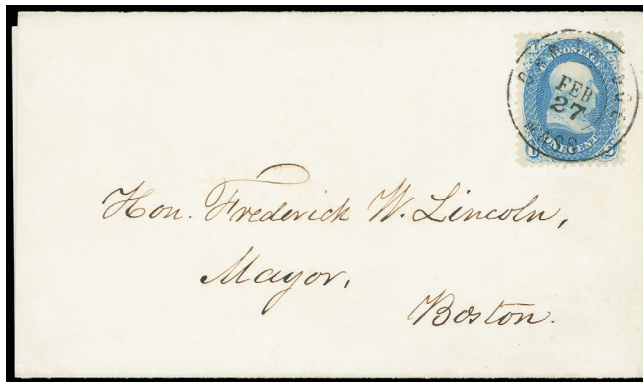 U.S. POSTAGE
FEB
27
MASS
ONE CENT
Hon. Frederick W. Lincoln,
Mayor,
Boston.